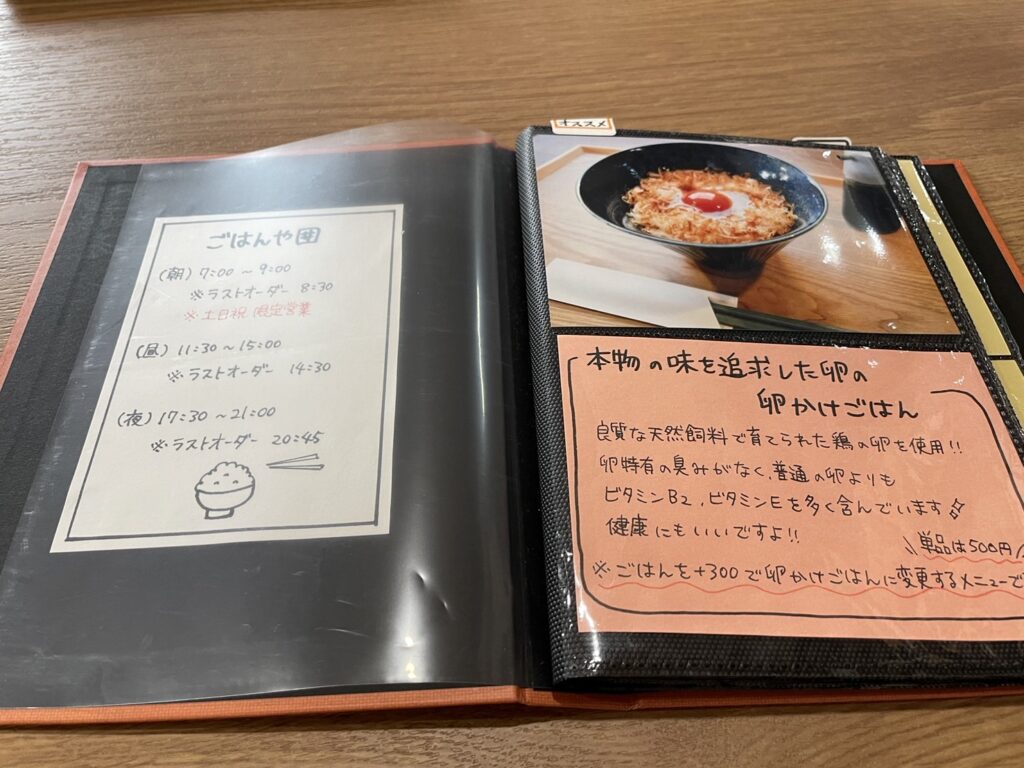 ごはんや
(朝) 7:00 ~ 9:00
※ラストオーダー 8:30
※土日祝 限定営業
(昼) 11:30 ~ 15:00
※ラストオーダー 14:30
(夜) 17:30 ~ 21:00
※ラストオーダー 20:45
オススメ
本物の味を追求した卵の
卵かけごはん
良質な天然飼料で育てられた鶏の卵を使用!!
卵特有の臭みがなく、普通の卵よりも
ビタミンB2、ビタミンEを多く含んでいます
健康にもいいですよ!!
単品は500円
※ごはんを+300で卵かけごはんに変更するメニューで